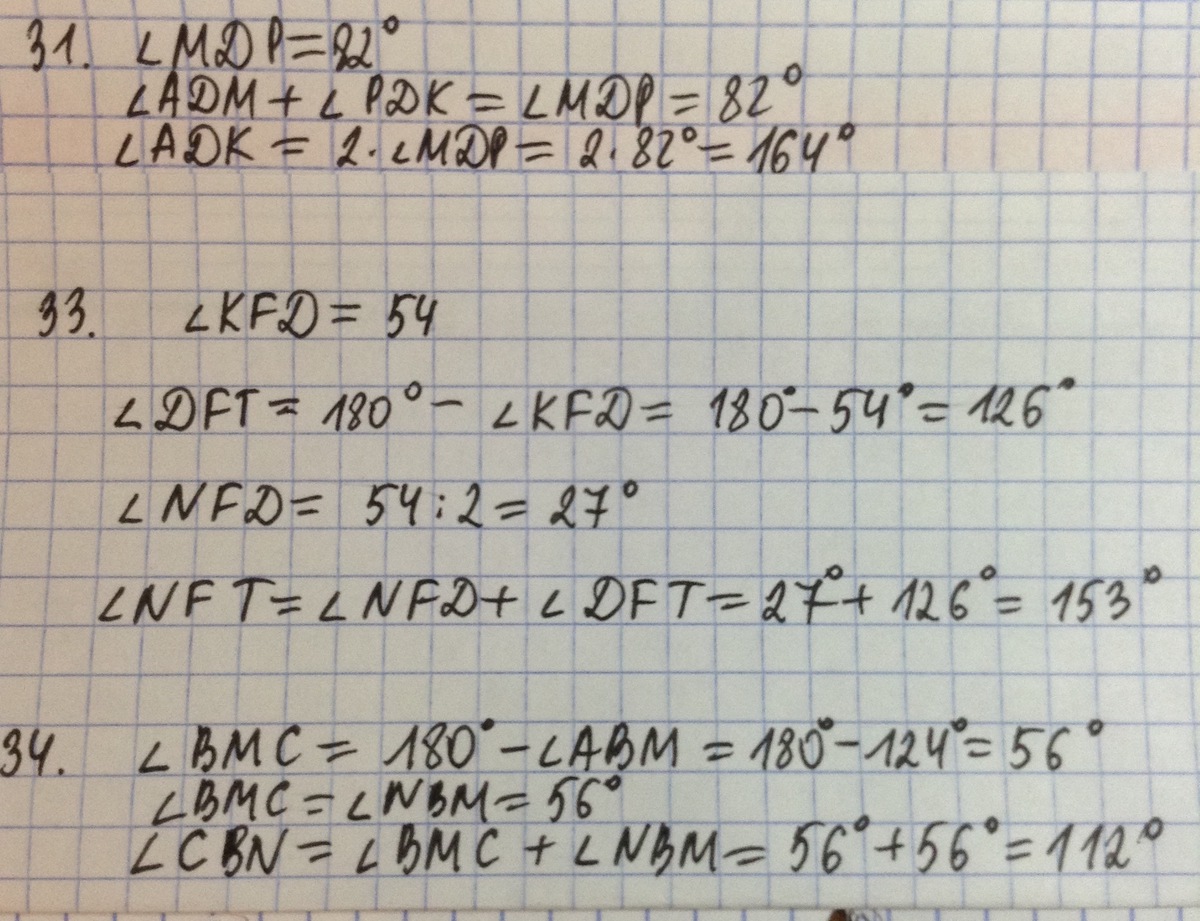 31. ∠MDP=82°
∠ADM + ∠PDK = ∠MDP = 82°
∠ADK = 2·∠MDP= 2·82°=164°
33. ∠KFD= 54
∠DFT= 180°- ∠KFD= 180°-54°=126°
∠NFD= 54:2=27°
∠NFT=∠NFD+ ∠DFT=27°+126°=153°
34. ∠BMC = 180°-∠ABM =180°-124°=56°
∠BMC=∠NBM=56°
∠CBN= ∠BMC + ∠NBM= 56°+56°=112°